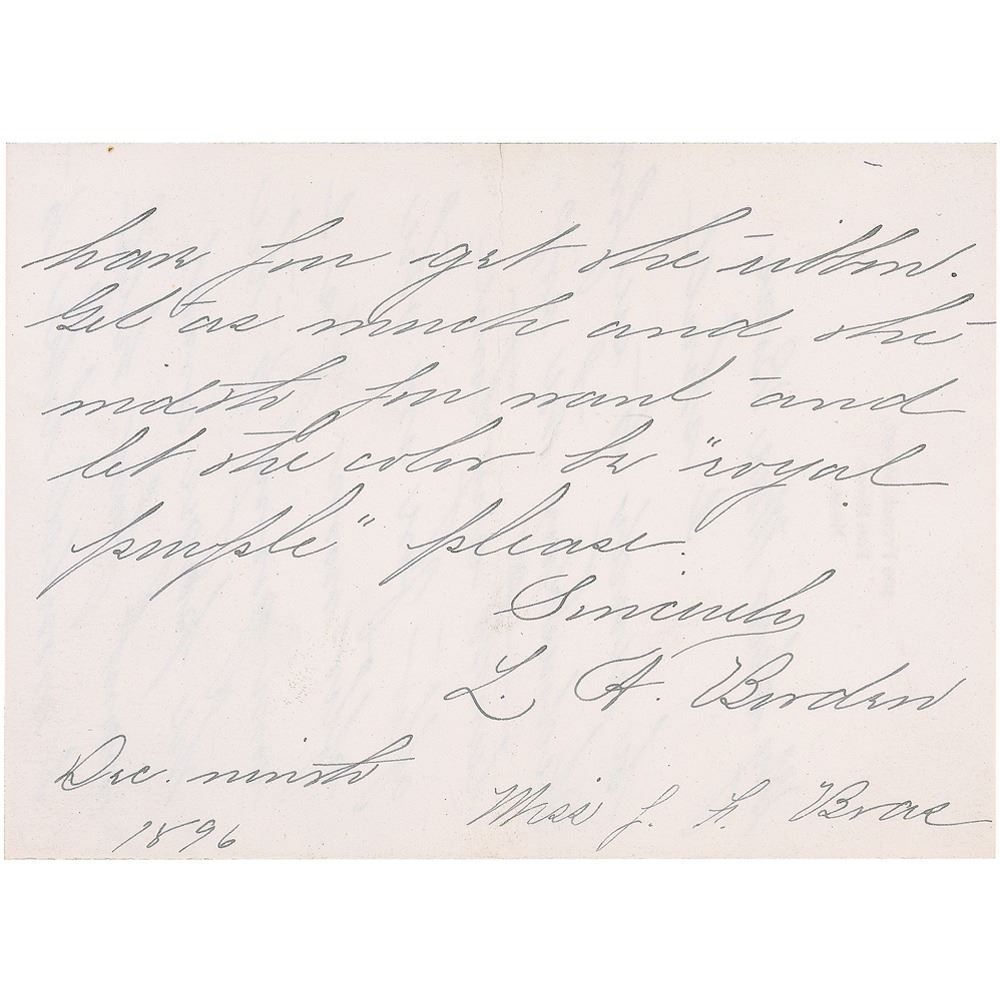 have you get the ribbon.
Get as much and the
width you want and
let the color be "royal
purple" please.
Sincerely
L. A. Borden
Dec. ninth
1896
Miss